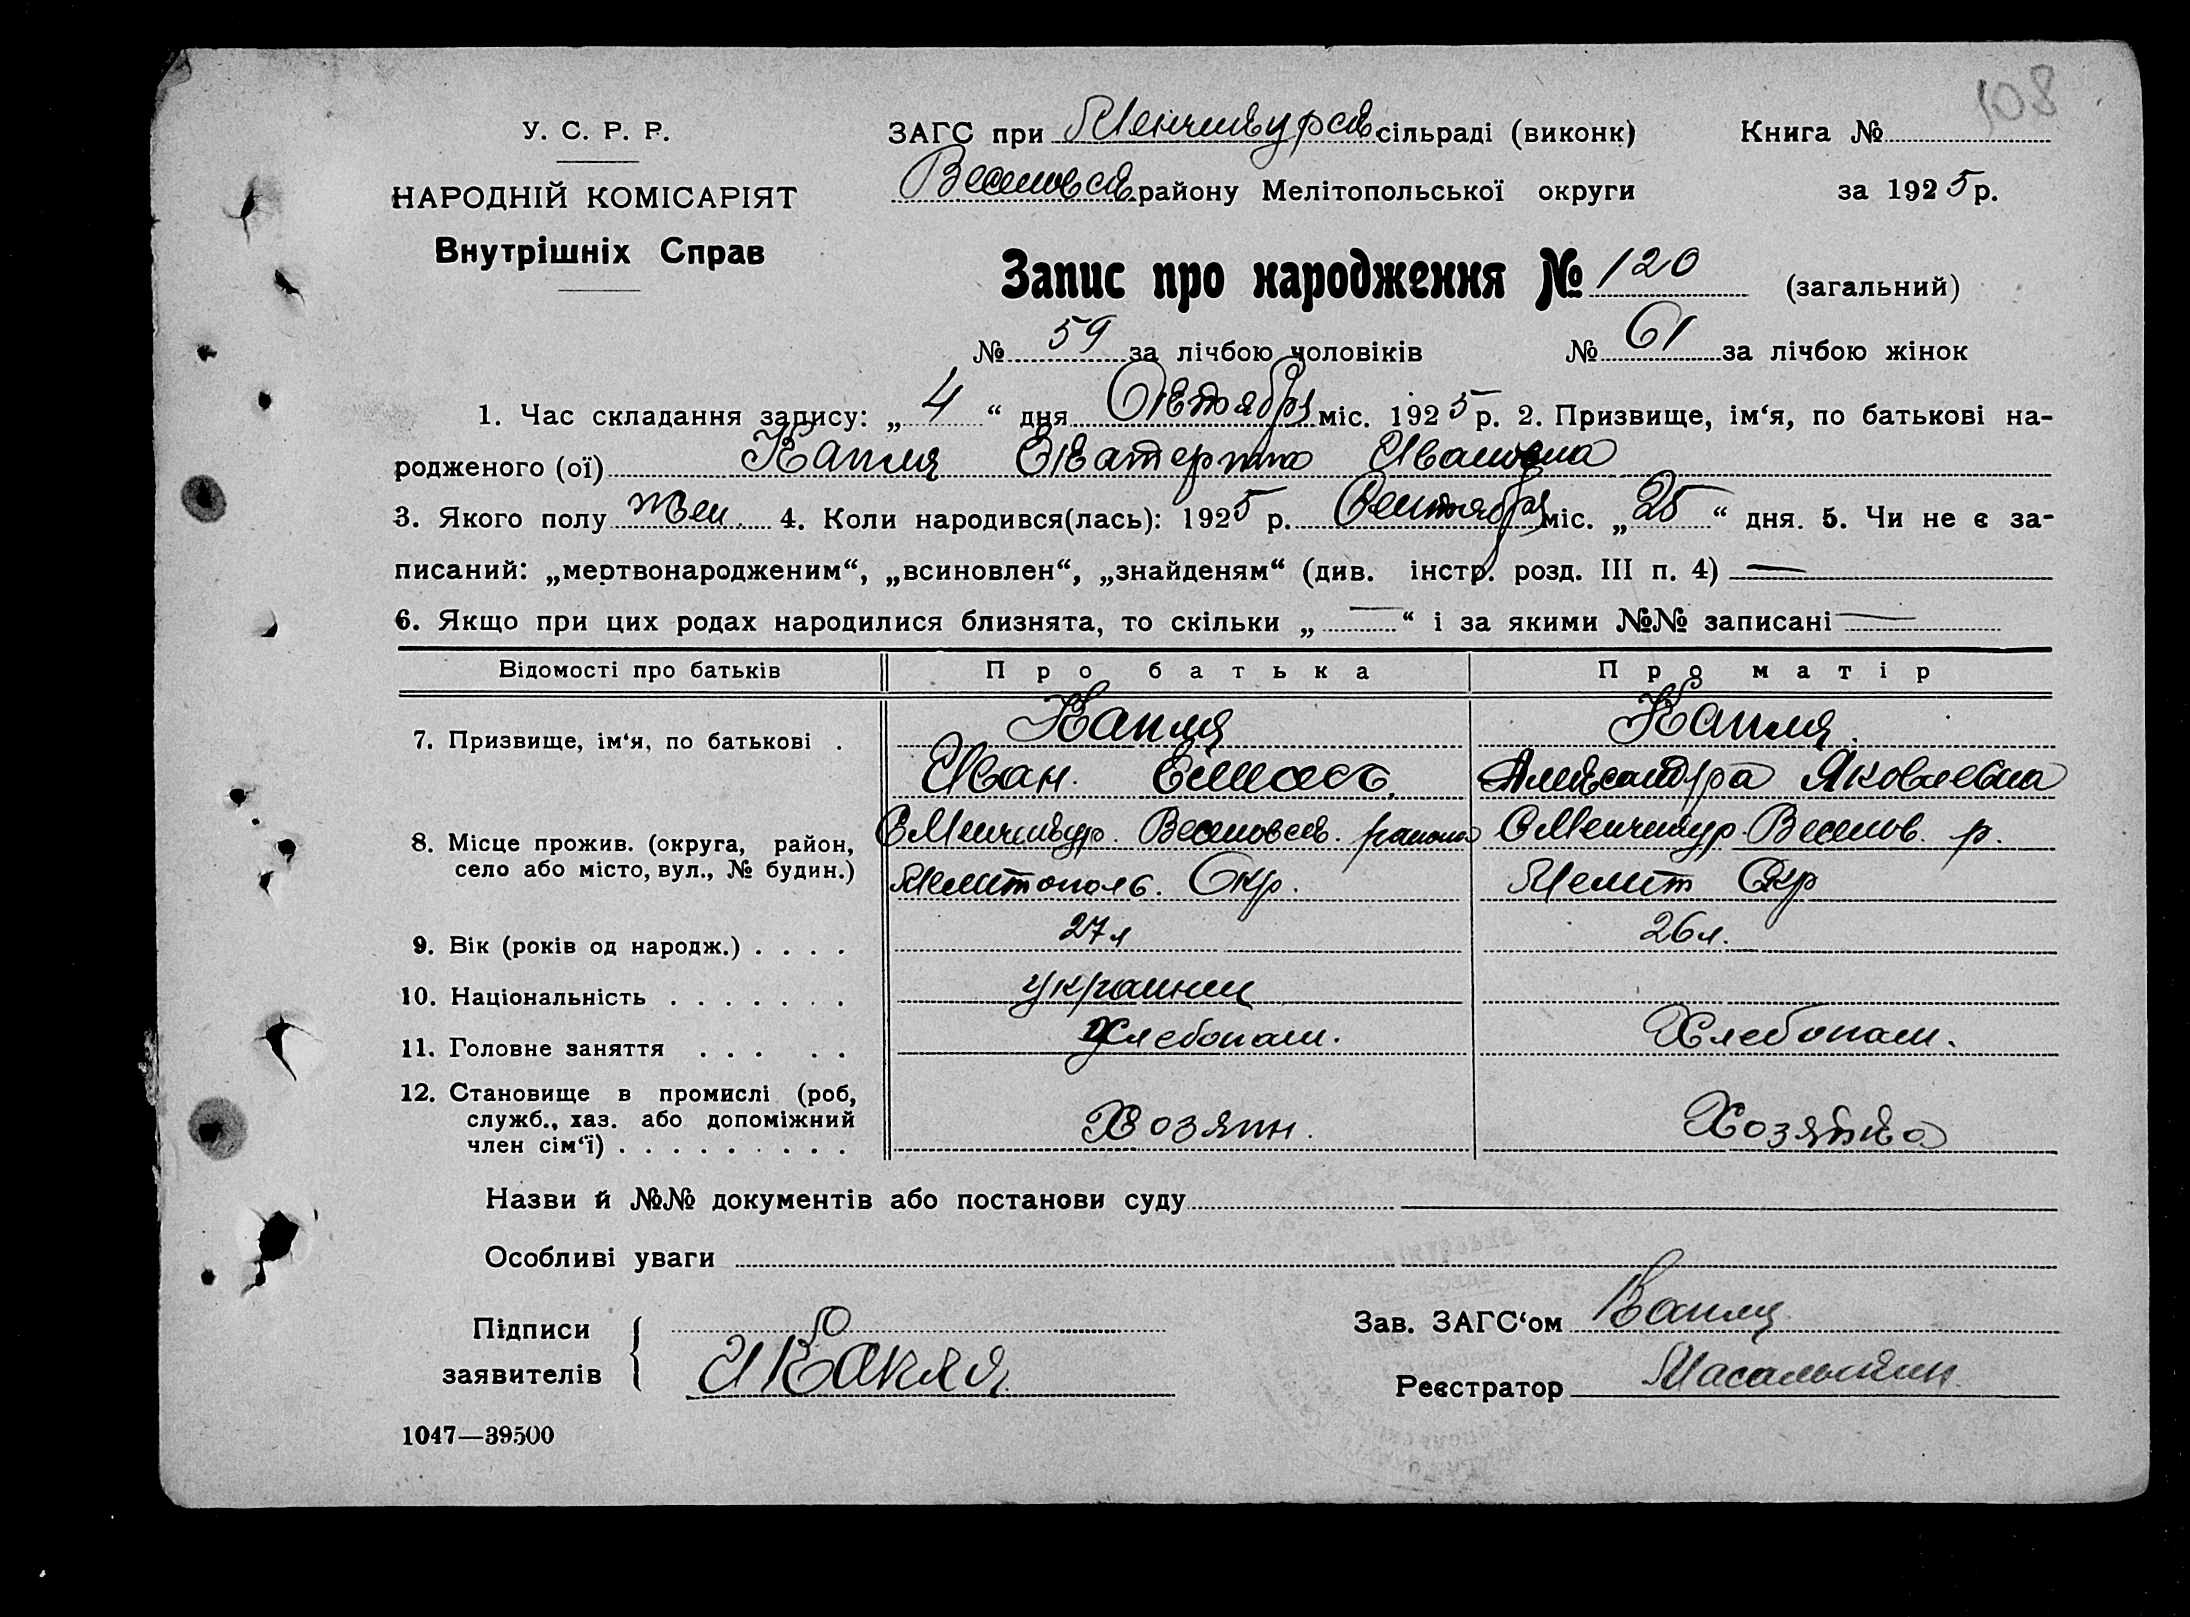 108
У. С. Р. Р.
НАРОДНІЙ КОМІСАРІЯТ
Внутрішніх Справ
ЗАГС при Менчикурск сільраді (виконк) Книга №
Веселовск району Мелітопольської округи за 1925 р.
Запис про народження № 120 (загальний)
№ 59 за лічбою чоловіків № 61 за лічбою жінок
1. Час складання запису: „ 4 “ дня Октября міс. 1925 р. 2. Призвище, ім‘я, по батькові на-
родженого (ої) Капля Екатерина Ивановна
3. Якого полу жен. 4. Коли народився(лась): 1925 р. Сентября міс. „ 25 “ дня. 5. Чи не є за-
писаний: „мертвонародженим“, „всиновлен“, „знайденям“ (див. інстр. розд. III п. 4) —
6. Якщо при цих родах народилися близнята, то скільки „ — “ і за якими №№ записані —
Відомості про батьків Про батька Про матір
7. Призвище, ім‘я, по батькові . Капля Капля.
Иван. Александра Яковлевна
8. Місце прожив. (округа, район, село або місто, вул., № будин.) С Менчикур. Веселовск. района С Менчикур. Веселов. р.
Мелитополь. Окр. Мелит Окр
9. Вік (років од народж.) . . . . 27 л 26 л.
10. Національність . . . . . . . украинец
11. Головне заняття . . . . . Хлебопаш. Хлебопаш.
12. Становище в промислі (роб, служб., хаз. або допоміжний член сім‘ї) . . . . . . . . . Хозяин. Хозяйка
Назви й №№ документів або постанови суду
Особливі уваги
Підписи заявителів И Капля
Зав. ЗАГС‘ом Капля
Реєстратор
1047—39500